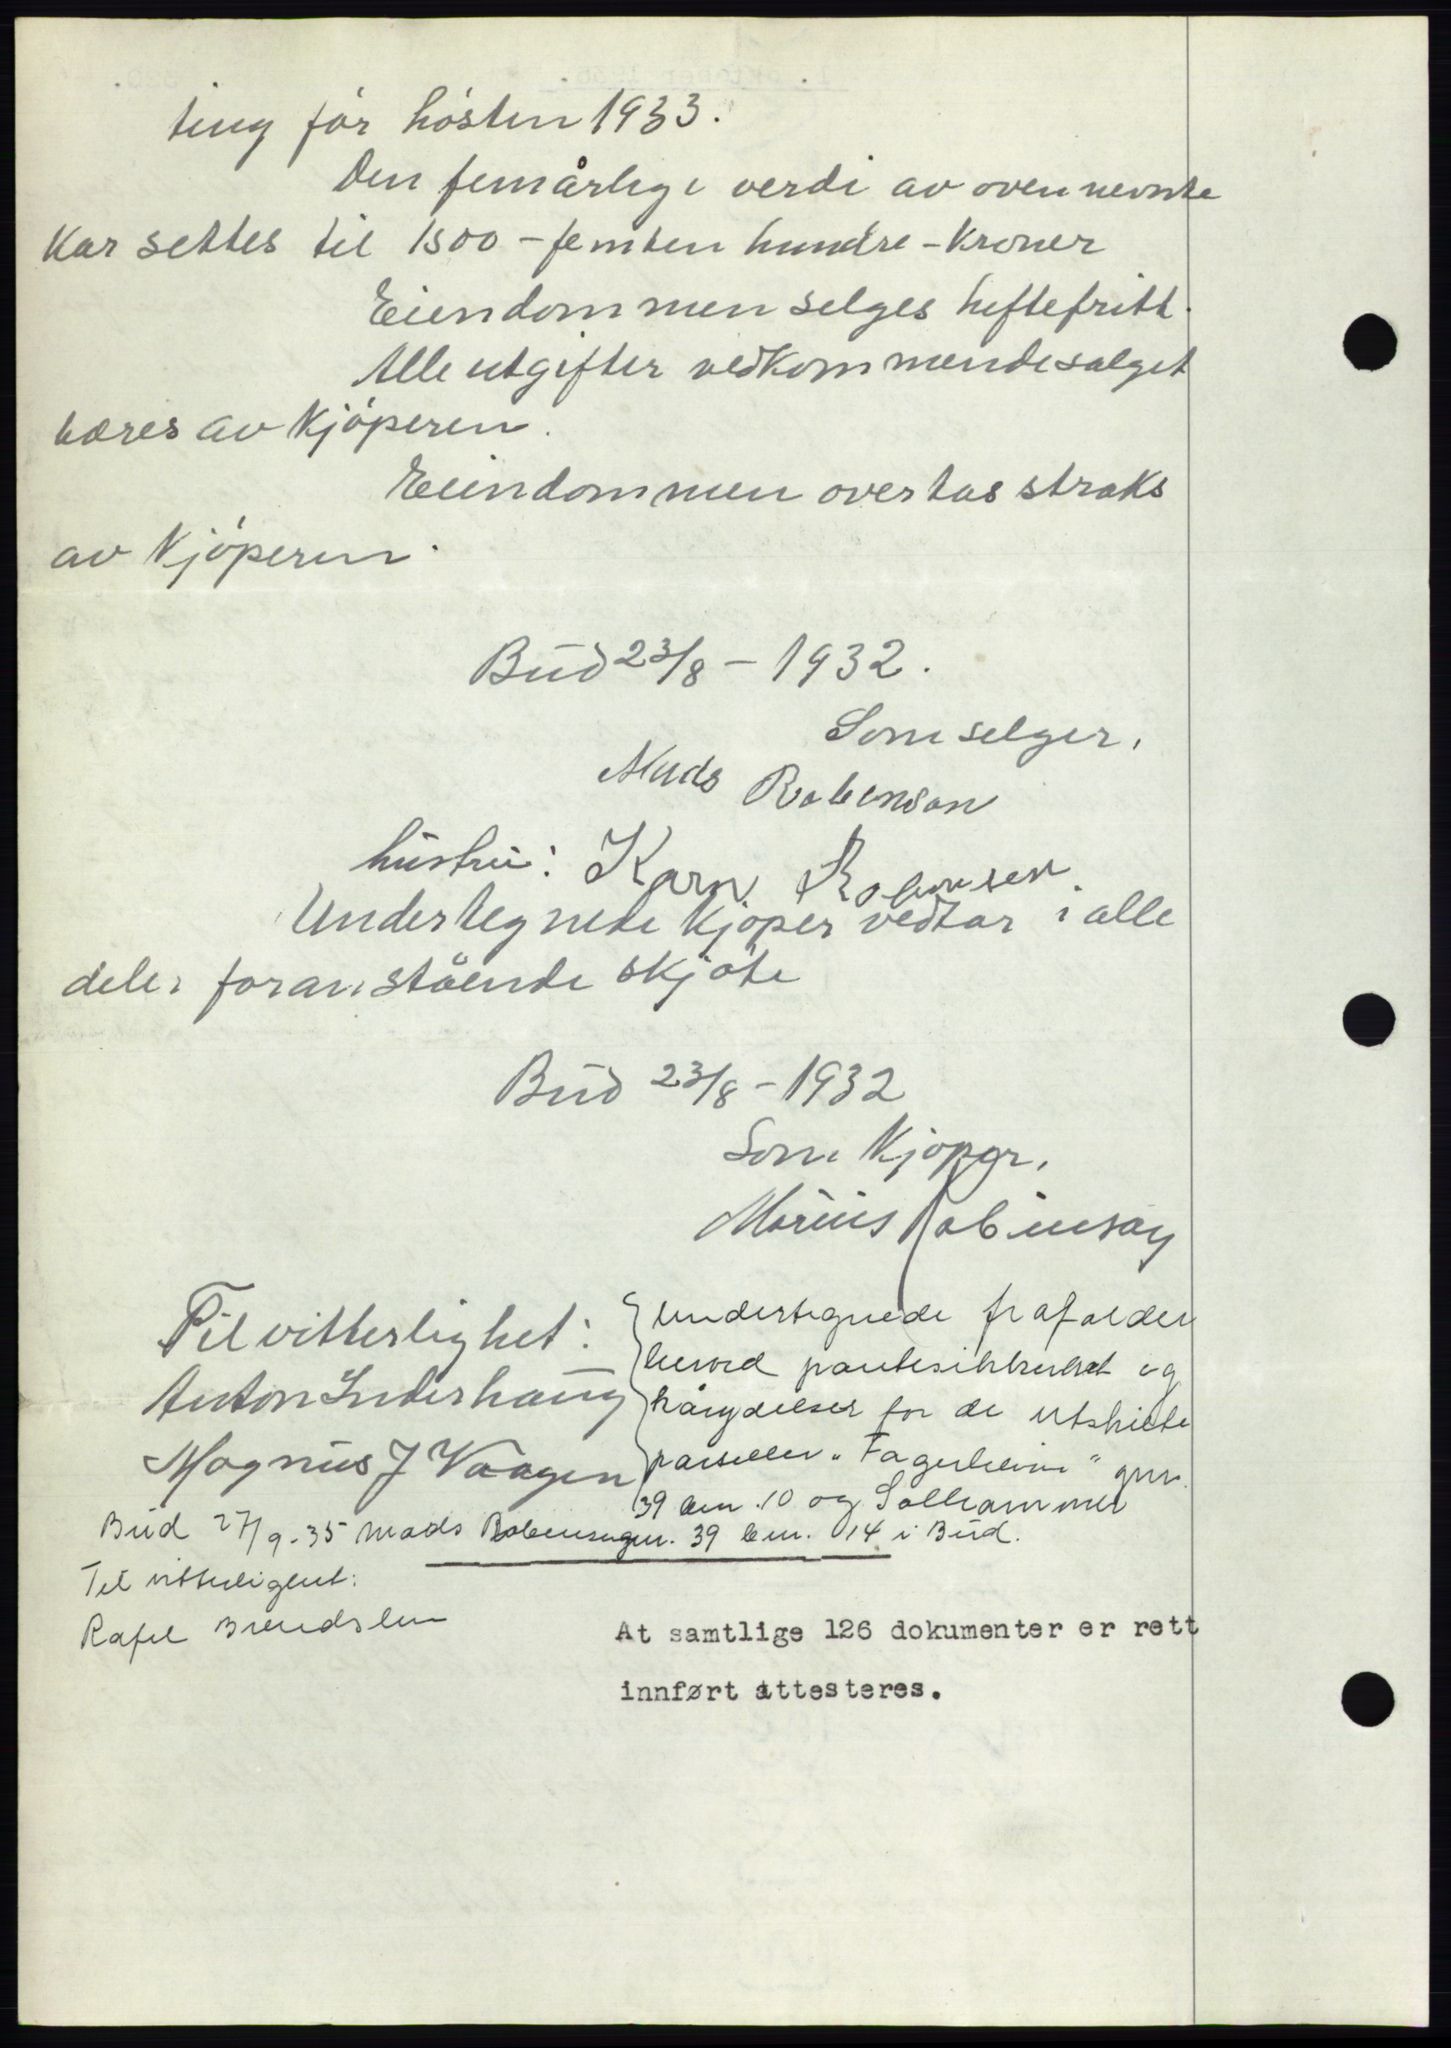 ting før høsten 1933.
Den femårlige verdi av ovennevnte
Kår settes til 1500 - femten hundre - Kroner
Eiendommen selges heftefritt.
Alle utgifter vedkommende salget
bæres av Kjøperen.
Eiendommen overtas straks
av Kjøperen.
Bud 23/8 - 1932.
Som selger,
Mads Robinson
hustru: Karn
Undertegnede Kjøper vedtar i alle
deler foranstående skjøte
Bud 23/8 - 1932
Som Kjøper,
Marius Robinson
Til vitterlighet:
Anton Inderhaug
Magnus J Vaagen
Undertegnede frafalder
herved pantesikkerhet og
kårydelser for de utskilte
parseller "Fagerheim" gnr.
39 bnr. 10 og Solhammer
gnr. 39 bnr. 14 i Bud.
Bud 27/9-35 Mads Robinson
Til vitterlighet:
At samtlige 126 dokumenter er rett
innført attesteres.